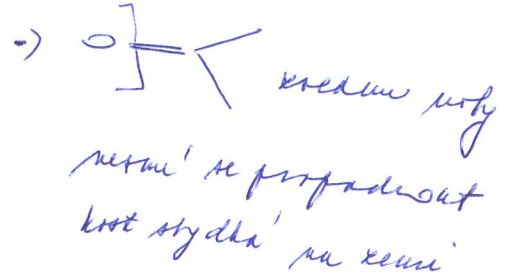 zvednu nohy
nesmí se propadnout
kost stydká na zemi